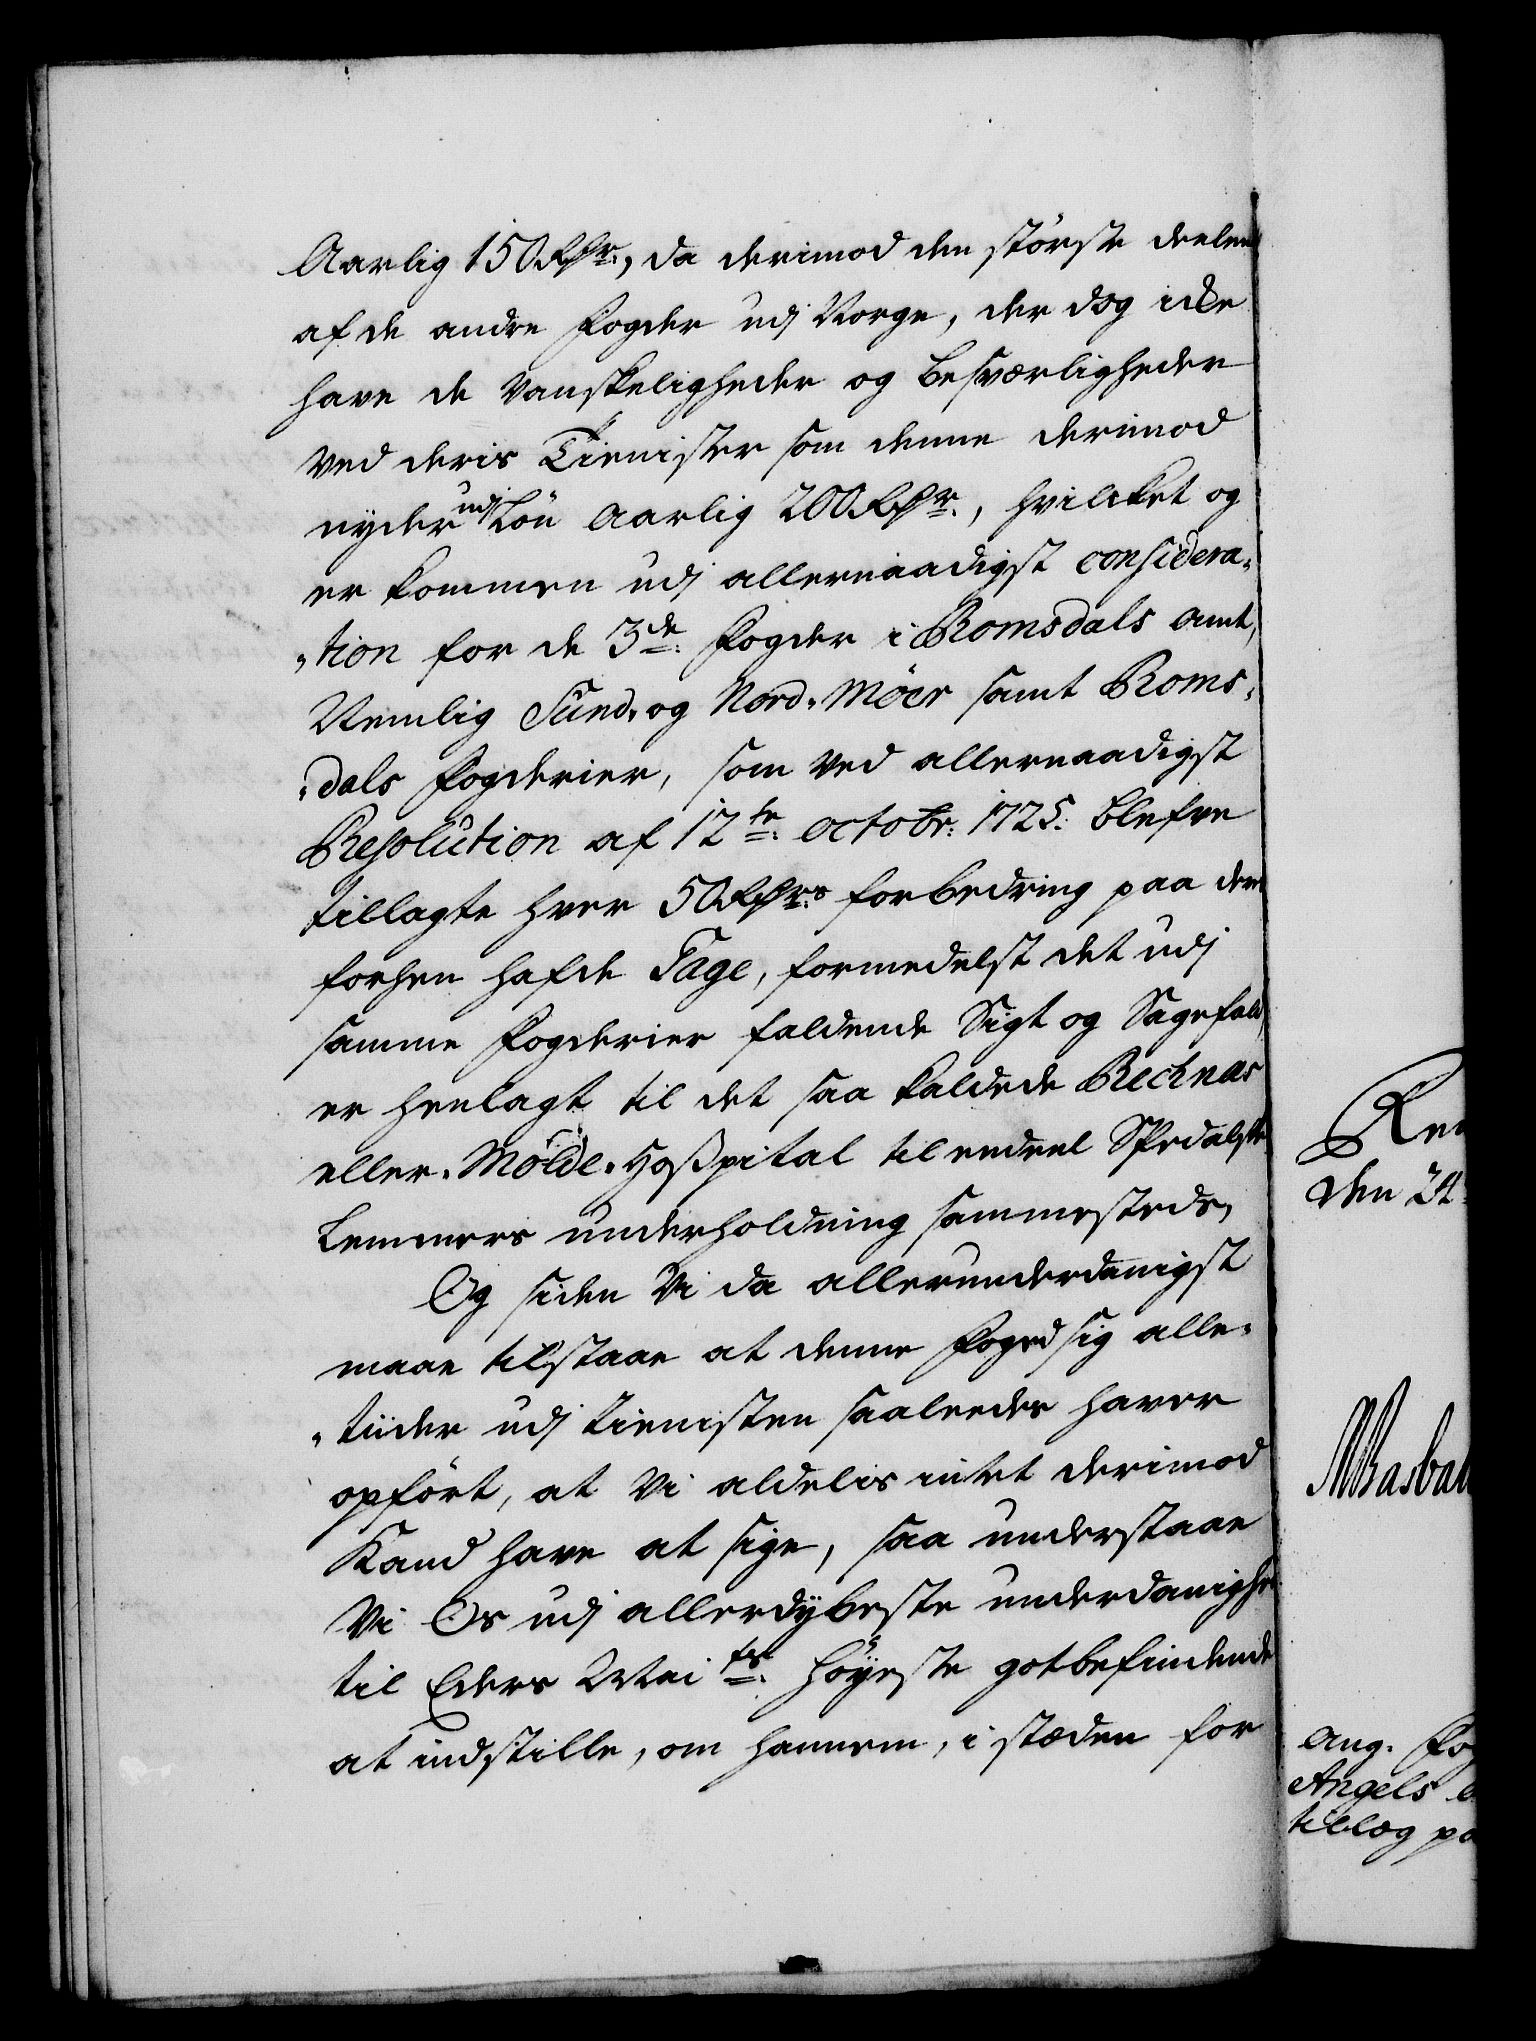 Aarlig 150 Rdr., da derimod den störste deelen
af de andre Fogder udj Norge, der dog icke
have de Vanskeligheder og Besværligheder
ved deris Tienister som denne derimod
nyder udj Lön Aarlig 200 Rdr., hvilcket og
er kommen udj allernaadigst considera-
-tion for de 3de Fogder i Romsdals Amt,
Nemlig Sund- og Nord-Möer samt Roms-
-dals Fogderier, som ved allernaadigst
Resolution af 12te octobr: 1725: blefve
tillagte hver 50 Rdrs forbedring paa den
forhen hafde Gage, formedelst det udj
samme Fogderier faldende Sigt og Sagefald
er henlagt til det saa kaldede Recknæs
eller Molde-Hoßpital til endeel Spedalske
Lemmers underholdning sammesteds,
Og siden Vi da allerunderdanigst
maae tilstaae at denne Foged sig alle-
-tiider udj tienisten saaleedes haver
opfört, at Vi aldelis intet derimod
Kand have at sige, saa understaae
Vi Os udj allerdybeste underdanighed
til Eders Maits. höyeste gotbefindende
at indstille, om hannem, i stæden for
den 24
Ang. Fog
Angels
tillæg pa